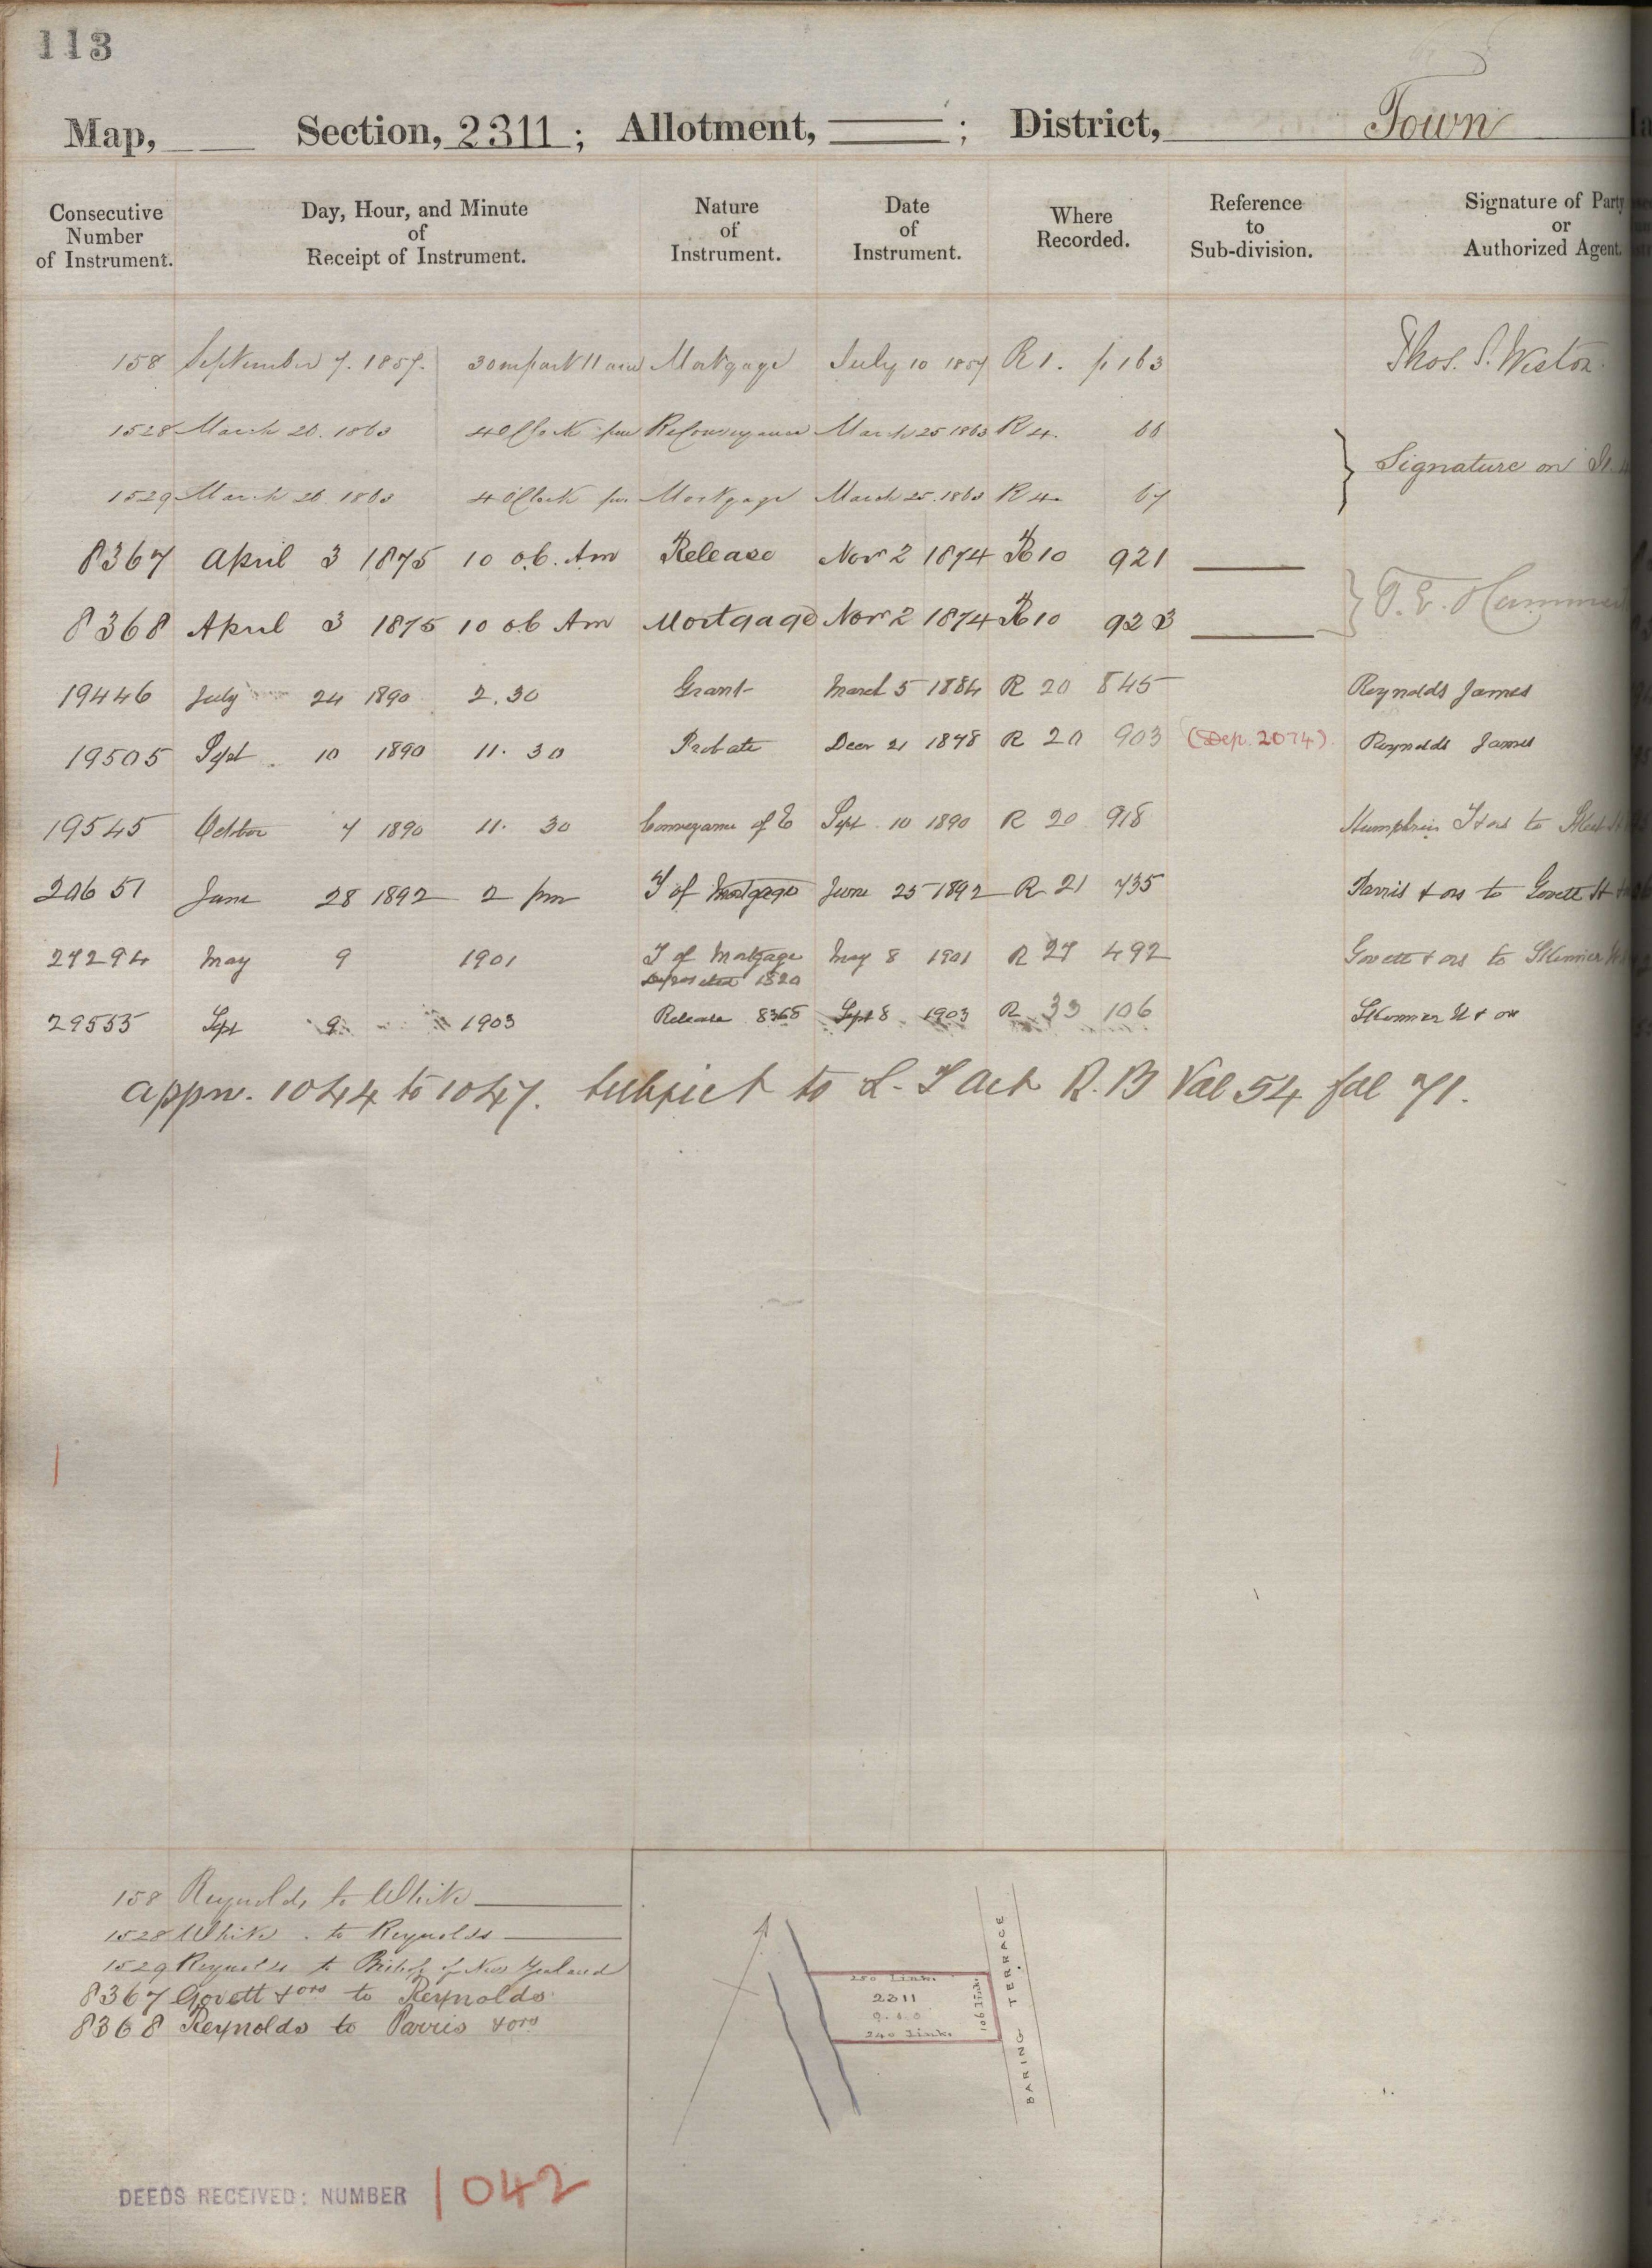 113
Map, Section, 2311 ; Allotment, ; District, Town
Consecutive Number of Instrument. Day, Hour, and Minute of Receipt of Instrument. Nature of Instrument. Date of Instrument. Where Recorded. Reference to Sub-division. Signature of Party or Authorized Agent.
158 September 7. 1857. 30 m past 11 am Mortgage July 10 1857 R 1. p 163 Thos. S. Weston.
1528 March 26. 1863 4 O'Clock pm Reconveyance March 25. 1863 R 4. 66
Signature on
1529 March 26 1863 4 O'Clock pm Mortgage March 25. 1863 R 4. 67
8367 April 3 1875 10 o.c. Am Release Nov 2 1874 R 10 921
8368 April 3 1875 10 o.c Am Mortgage Nov 2 1874 R 10 923
19446 July 24 1890 2.30 Grant March 5 1884 R 20 845 Reynolds James
19505 Sept. 10 1890 11. 30 Probate Decr 21 1878 R 20 903 (Dep. 2074) Reynolds James
19545 October 7 1890 11. 30 Conveyance of E Sept. 10 1890 R 20 918 Humphries & ors to
20651 June 28 1892 2 pm T of Mortgage June 25 1892 R 21 735 Parris & ors to Govett H
27294 May 9 1901 T of Mortgage May 8 1901 R 27 492 Govett & ors to Skinner
Deposited 1320
29555 Sept 9 1903 Release 8368 Sept 8 1903 R 33 106 Skinner & or
appn. 1044 to 1047. subject to L. T Act R. B Vol 54 fol 71.
158 Reynolds to White
1528 White to Reynolds
1529 Reynolds to Bishop of New Zealand
8367 Govett & ors to Reynolds
8368 Reynolds to Parris & ors
250 Link.
2311
240 Link.
106 Link.
BARING TERRACE
DEEDS RECEIVED: NUMBER 1042